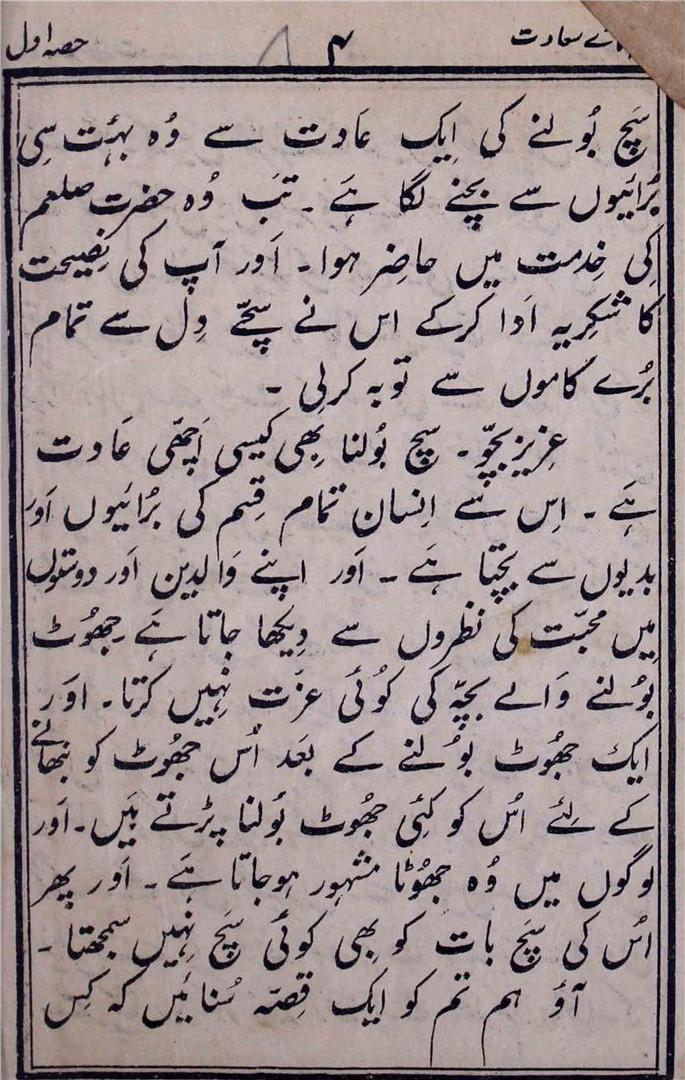 ے سعادت ۴ ۸ حصہ اول
سَچ بُولنے کی اِیک عَادت سے وُہ بہُت سِی
بُرائیوں سے بچنے لگا ہَے ۔ تَب وُہ حضرت صلعم
کِی خِدمت میں حاضِر ہوا ۔ اَور آپ کی نِصیحت
کا شکرِیہ اَدا کرکے اس نے سچّے دِل سے تمام
بُرے کاموں سے توبہ کرلِی ۔
عزِیز بچّو ۔ سچ بُولنا بِھی کیسی اَچھّی عَادت
ہَے ۔ اِس سے اِنسان تمام قِسم کی برُائیوں اَور
بدیوں سے بچتا ہَے ۔ اَور اپنے وَالدین اَور دوستوں
مِیں محبّت کی نظروں سے دِیکھا جاتا ہَے ۔ جھُوٹ
بوُلنے وَالے بچّہ کی کوُئی عزّت نہِیں کرتا ۔ اوَر
ایک جھُوٹ بوُلنے کے بعَد اُس جھُوٹ کو نبھانے
کے لِئے اُس کو کئِی جھُوٹ بوُلنا پڑتے ہیَں ۔ اَور
لوگوں میں وُہ جھُوٹا مشہور ہوجاتا ہَے ۔ اَور پھِر
اُس کی سَچ بات کو بِھی کوئی سَچ نہِیں سمجھتا ۔
آؤ ہم تم کو ایک قِصّہ سُنائیں کہ کِس